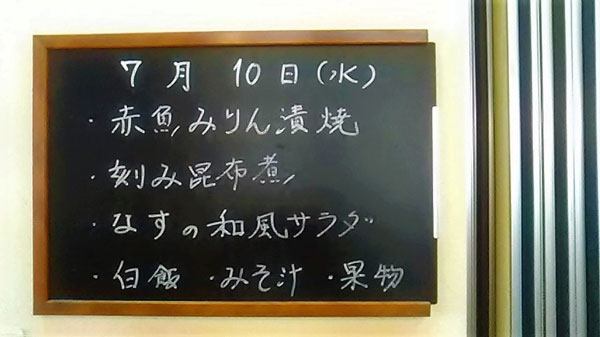 7月 10日(水)
・赤魚みりん漬焼
・刻み昆布煮
・なすの和風サラダ
・白飯 ・みそ汁 ・果物